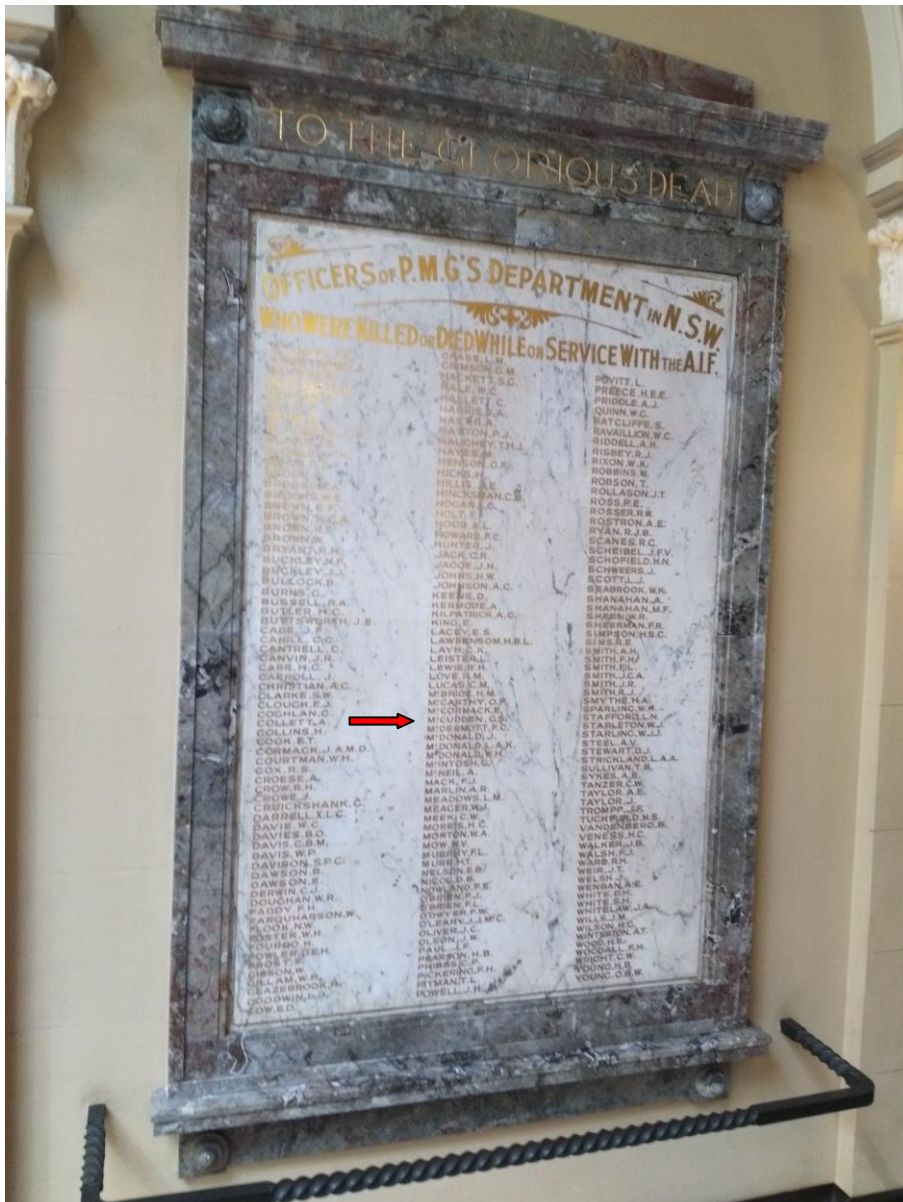 TO THE GLORIOUS DEAD
OFFICERS OF P.M.G'S DEPARTMENT IN N.S.W.
WHO WERE KILLED OR DIED WHILE ON SERVICE WITH THE A.I.F.
BROWN, E.F.
BROWN, R.T.
BROWN, W.
BRYANT, R.H.
BUCKLEY, H.F.
BUCKLEY, J.J.
BULLOCK, B.
BURNS, C.
BUSSELL, R.A.
BUTLER, H.C.
BUTTSWORTH, J.E.
CADE, J.F.
CAHILL, C.C.
CANTRELL, C.
CANVIN, J.R.
CARR, H.C.
CARROLL, J.
CHRISTIAN, A.C.
CLARKE, S.W.
CLOUGH, E.J.
COGHLAN, G.
COLLETT, A.
COLLINS, H.
COOK, E.T.
CORMACK, J.A.M.D.
COURTMAN, W.H.
COX, R.S.
CROESE, A.
CROW, R.H.
CROWE, J.
CRUICKSHANK, G.
DARRELL, X.L.C.
DAVIE, W.C.
DAVIES, B.O.
DAVIS, C.B.M.
DAVIS, W.P.
DAVISON, S.P.C.
DAWSON, B.
DAWSON, E.
DERWIN, C.J.
DOUGHAN, W.R.
FADDY, F.H.
FARQUHARSON, W.
FLOOK, N.W.
FOSTER, W.H.
FOURRO, H.
FOWLER, D.E.H.
FROST, F.
GIBSON, W.
GILLAM, W.R.
GLAZEBROOK, R.
GOODWIN, L.J.
GOW, E.D.
GRASS, L.M.
GRIMSON, G.M.
HACKETT, S.C.
HALE, W.C.
HALLETT, C.
HARRIS, S.A.
HARTON, P.J.
HAUGHEY, TH.J.
HAYES, M.
HENSON, C.F.
HICKS, N.
HILLIS, J.E.
HINCKSMAN, C.B.
HOGAN, L.G.
HOLT, F.
HOOD, A.L.
HOWARD, F.C.
HUNTER, J.
JACK, C.R.
JAGOE, J.H.
JOHNS, H.W.
JOHNSON, A.C.
KEENS, D.
KERMODE, A.
KILPATRICK, A.C.
KING, E.
LACEY, E.S.
LAWRENSOM, H.B.L.
LAYH, C.K.
LEISTER, L.
LEWIS, R.H.
LOVE, R.M.
LUCAS, C.M.
McBRIDE, H.M.
McCARTHY, O.F.
McCORMACK, E.
McCUDDEN, G.S.
McDERMOTT, F.C.
McDONALD, J.
McDONALD, L.A.K.
McDONALD, W.H.
McINTOSH, G.
McNEIL, A.
MACK, F.J.
MARLIN, A.R.
MEADOWS, L.M.
MEAGER, W.J.
MEEK, C.W.
MORRIS, H.C.
MORTON, W.A.
MOW, W.V.
MURPHY, F.L.
MURR, H.T.
NELSON, E.B.
NICOL, D.B.
NOWLAND, F.E.
O'BRIEN, F.J.
O'BRIEN, F.L.
O'DWYER, P.W.
O'LEARY, J.J. McC.
OLIVER, J.C.
OLSON, J.W.
PAUL, J.F.
PEARSON, H.B.
PHIBBS, C.P.
PICKERING, F.H.
PITMAN, T.L.
POWELL, J.H.
POVITT, L.
PREECE, H.E.E.
PRIDDLE, A.J.
QUINN, W.C.
RATCLIFFE, S.
RAVAILLION, W.C.
RIDDELL, A.H.
RISBEY, R.J.
RIXON, W.K.
ROBBINS, W.
ROBSON, T.
ROLLASON, J.T.
ROSS, P.E.
ROSSER, R.W.
ROSTRON, A.E.
RYAN, R.J.B.
SCANES, R.C.
SCHEIBEL, J.F.V.
SCHOFIELD, H.N.
SCHWEERS, J.
SCOTT, L.J.
SEABROOK, W.K.
SHANAHAN, A.
SHANAHAN, M.F.
SHEEN, W.R.
SHEERMAN, F.R.
SIMPSON, H.S.C.
SIMS, R.E.
SMITH, A.H.
SMITH, F.H.
SMITH, E.L.
SMITH, J.C.A.
SMITH, J.R.
SMITH, R.J.
SMYTHE, H.A.
SPARLING, W.R.
STAFFORD, L.N.
STAPLETON, W.J.
STARLING, W.J.J.
STEEL, A.V.
STEWART, D.J.
STRICKLAND, L.A.A.
SULLIVAN, T.B.
SYKES, A.E.
TANZER, C.W.
TAYLOR, A.E.
TAYLOR, J.
TROMPP, J.F.
TUCKFIELD, N.S.
VANDENBERG, B.
VENESS, H.C.
WALKER, J.B.
WALSH, F.J.
WARD, R.H.
WEIR, J.T.
WELSH, J.
WENBAN, A.E.
WHITE, D.H.
WHITE, S.H.
WHITELAW, J.A.
WILLS, J.M.
WILSON, H.C.
WINTERTON, A.T.
WOOD, H.E.
WOODALL, F.H.
WRIGHT, C.W.
YOUNG, H.B.
YOUNG, O.R.W.